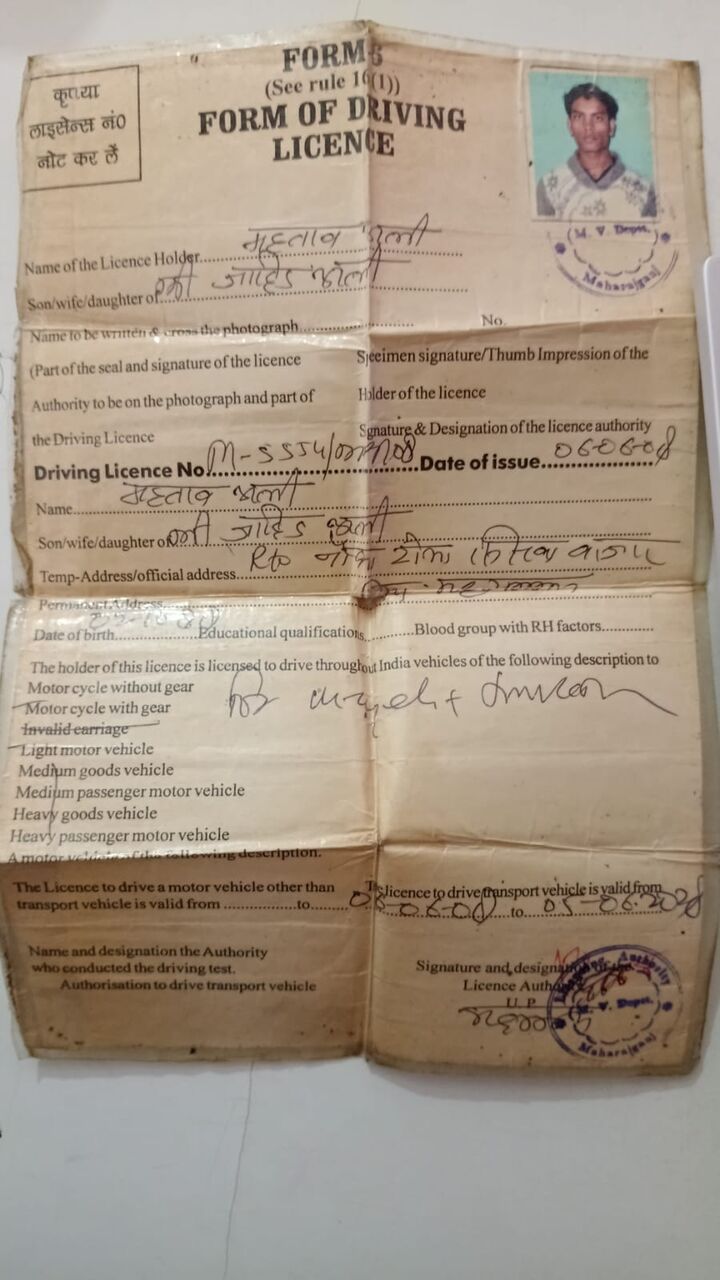 FORM 6
(See rule 16(1))
FORM OF DRIVING
LICENCE
कृपया
लाइसेन्स नं0
नोट कर लें
(M. V. Deptt.)
Maharajganj
Name of the Licence Holder महताव अली
Son/wife/daughter of श्री जाहिद अली
Name to be written & cross the photograph
No.
(Part of the seal and signature of the licence
Authority to be on the photograph and part of
the Driving Licence
Specimen signature/Thumb Impression of the
Holder of the licence
Signature & Designation of the licence authority
Driving Licence No. M-5554/ /08 Date of issue 06-06-08
Name महताव अली
Son/wife/daughter of श्री जाहिद अली
Temp-Address/official address R/o टोला बाजार
Permanent Address
Date of birth Educational qualifications Blood group with RH factors
The holder of this licence is licensed to drive throughout India vehicles of the following description to
Motor cycle without gear
Motor cycle with gear
Invalid carriage
Light motor vehicle
Medium goods vehicle
Medium passenger motor vehicle
Heavy goods vehicle
Heavy passenger motor vehicle
A motor vehicles of the following description.
The Licence to drive a motor vehicle other than
transport vehicle is valid from to
The licence to drive transport vehicle is valid from
06-06-08 to 05-06-2028
Name and designation the Authority
who conducted the driving test.
Authorisation to drive transport vehicle
Signature and designation of the
Licence Authority
U. P
Licensing Authority
(M. V. Deptt.)
Maharajganj